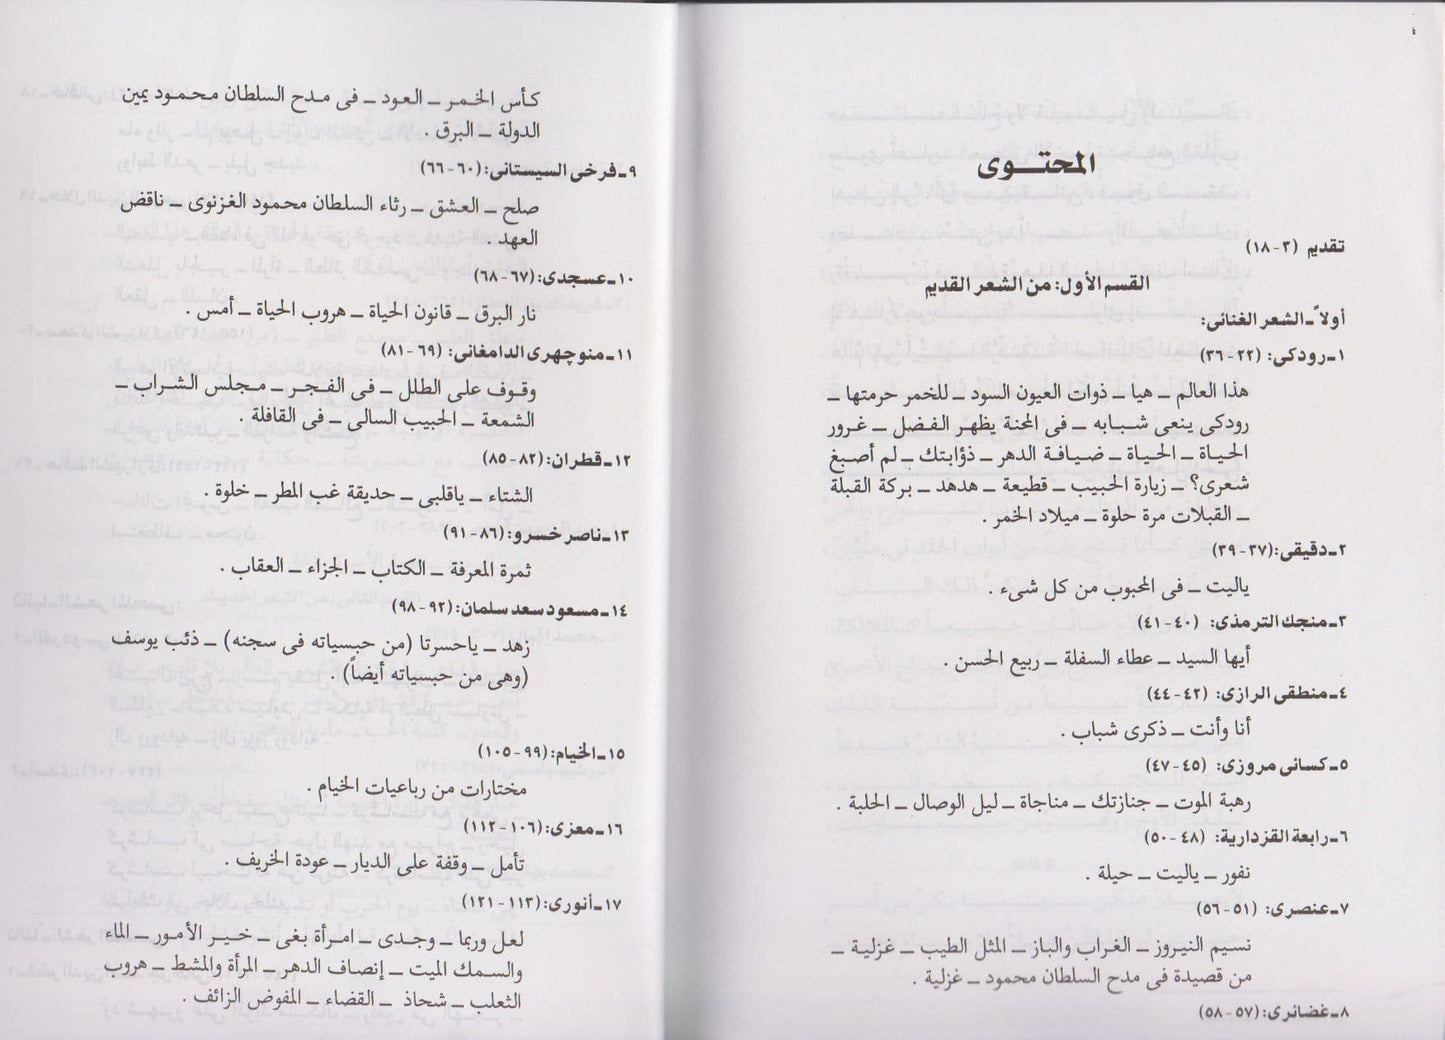 المحتوى
تقديم (٣-١٨)
القسم الأول: من الشعر القديم
أولاً ـ الشعر الغنائى:
١ـ رودكى: (٢٢-٣٦)
هذا العالم ـ هيا ـ ذوات العيون السود ـ للخمر حرمتها ـ
رودكى ينعى شبابه ـ فى المحنة يظهر الفضل ـ غرور
الحياة ـ الحياة ـ ضيافة الدهر ـ ذؤابتك ـ لم أصبغ
شعرى؟ ـ زيارة الحبيب ـ قطيعة ـ هدهد ـ بركة القبلة
ـ القبلات مرة حلوة ـ ميلاد الخمر .
٢ـ دقيقى: (٣٧-٣٩)
ياليت ـ فى المحبوب من كل شىء .
٣ـ منجك الترمذى: (٤٠-٤١)
أيها السيد ـ عطاء السفلة ـ ربيع الحسن .
٤ـ منطقى الرازى: (٤٢-٤٤)
أنا وأنت ـ ذكرى شباب .
٥ـ كسائى مروزى: (٤٥-٤٧)
رهبة الموت ـ جنازتك ـ مناجاة ـ ليل الوصال ـ الحلبة .
٦ـ رابعة القزدارية: (٤٨-٥٠)
نفور ـ ياليت ـ حيلة .
٧ـ عنصرى: (٥١-٥٦)
نسيم النيروز ـ الغراب والباز ـ المثل الطيب ـ غزلية ـ
من قصيدة فى مدح السلطان محمود ـ غزلية .
٨ـ غضائرى: (٥٧-٥٨)
كأس الخمر ـ العود ـ فى مدح السلطان محمود يمين
الدولة ـ البرق .
٩ـ فرخى السيستانى: (٦٠-٦٦)
صلح ـ العشق ـ رثاء السلطان محمود الغزنوى ـ ناقض
العهد .
١٠ـ عسجدى: (٦٧-٦٨)
نار البرق ـ قانون الحياة ـ هروب الحياة ـ أمس .
١١ـ منوچهرى الدامغانى: (٦٩-٨١)
وقوف على الطلل ـ فى الفجر ـ مجلس الشراب ـ
الشمعة ـ الحبيب السالى ـ فى القافلة .
١٢ـ قطران: (٨٢-٨٥)
الشتاء ـ ياقلبى ـ حديقة غب المطر ـ خلوة .
١٣ـ ناصر خسرو: (٨٦-٩١)
ثمرة المعرفة ـ الكتاب ـ الجزاء ـ العقاب .
١٤ـ مسعود سعد سلمان: (٩٢-٩٨)
زهد ـ ياحسرتا (من حبسياته فى سجنه) ـ ذئب يوسف
(وهى من حبسياته أيضاً) .
١٥ـ الخيام: (٩٩-١٠٥)
مختارات من رباعيات الخيام .
١٦ـ معزى: (١٠٦-١١٢)
تأمل ـ وقفة على الديار ـ عودة الخريف .
١٧ـ أنورى: (١١٣-١٢١)
لعل وربما ـ وجدى ـ امرأة بغى ـ خير الأمور ـ الماء
والسمك الميت ـ إنصاف الدهر ـ المرأة والمشط ـ هروب
الثعلب ـ شحاذ ـ القضاء ـ المفوض الزائف .